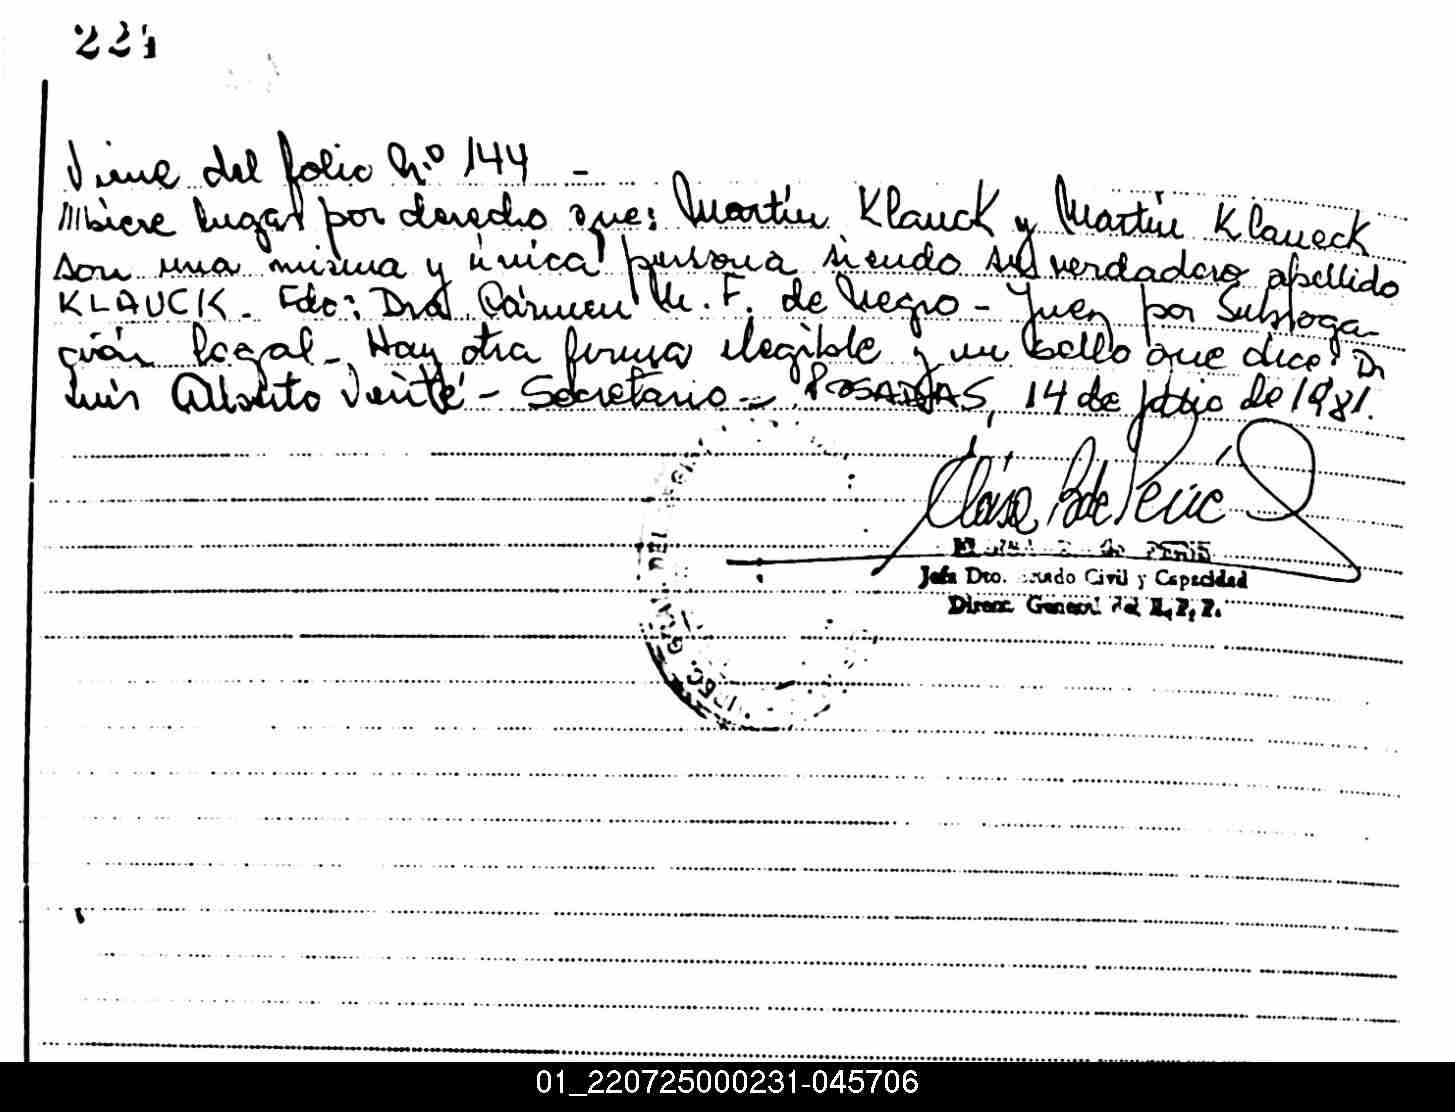 224
Viene del folio N.º 144 -
lugar por derecho que: Martín Klauck y Martín Klaueck
son una misma y única persona siendo su verdadero apellido
KLAUCK - Fdo: Dra. Cármen M. F. de Negro - Juez por Subroga-
ción legal - Hay otra firma ilegible y un sello que dice: Dr
Luis Alberto - Secretario - POSADAS, 14 de Julio de 1981.
Jefa Dto. Civil y Capacidad
Direcc. General del R. P. P.
DIREC. GRAL. DEL
01_220725000231-045706